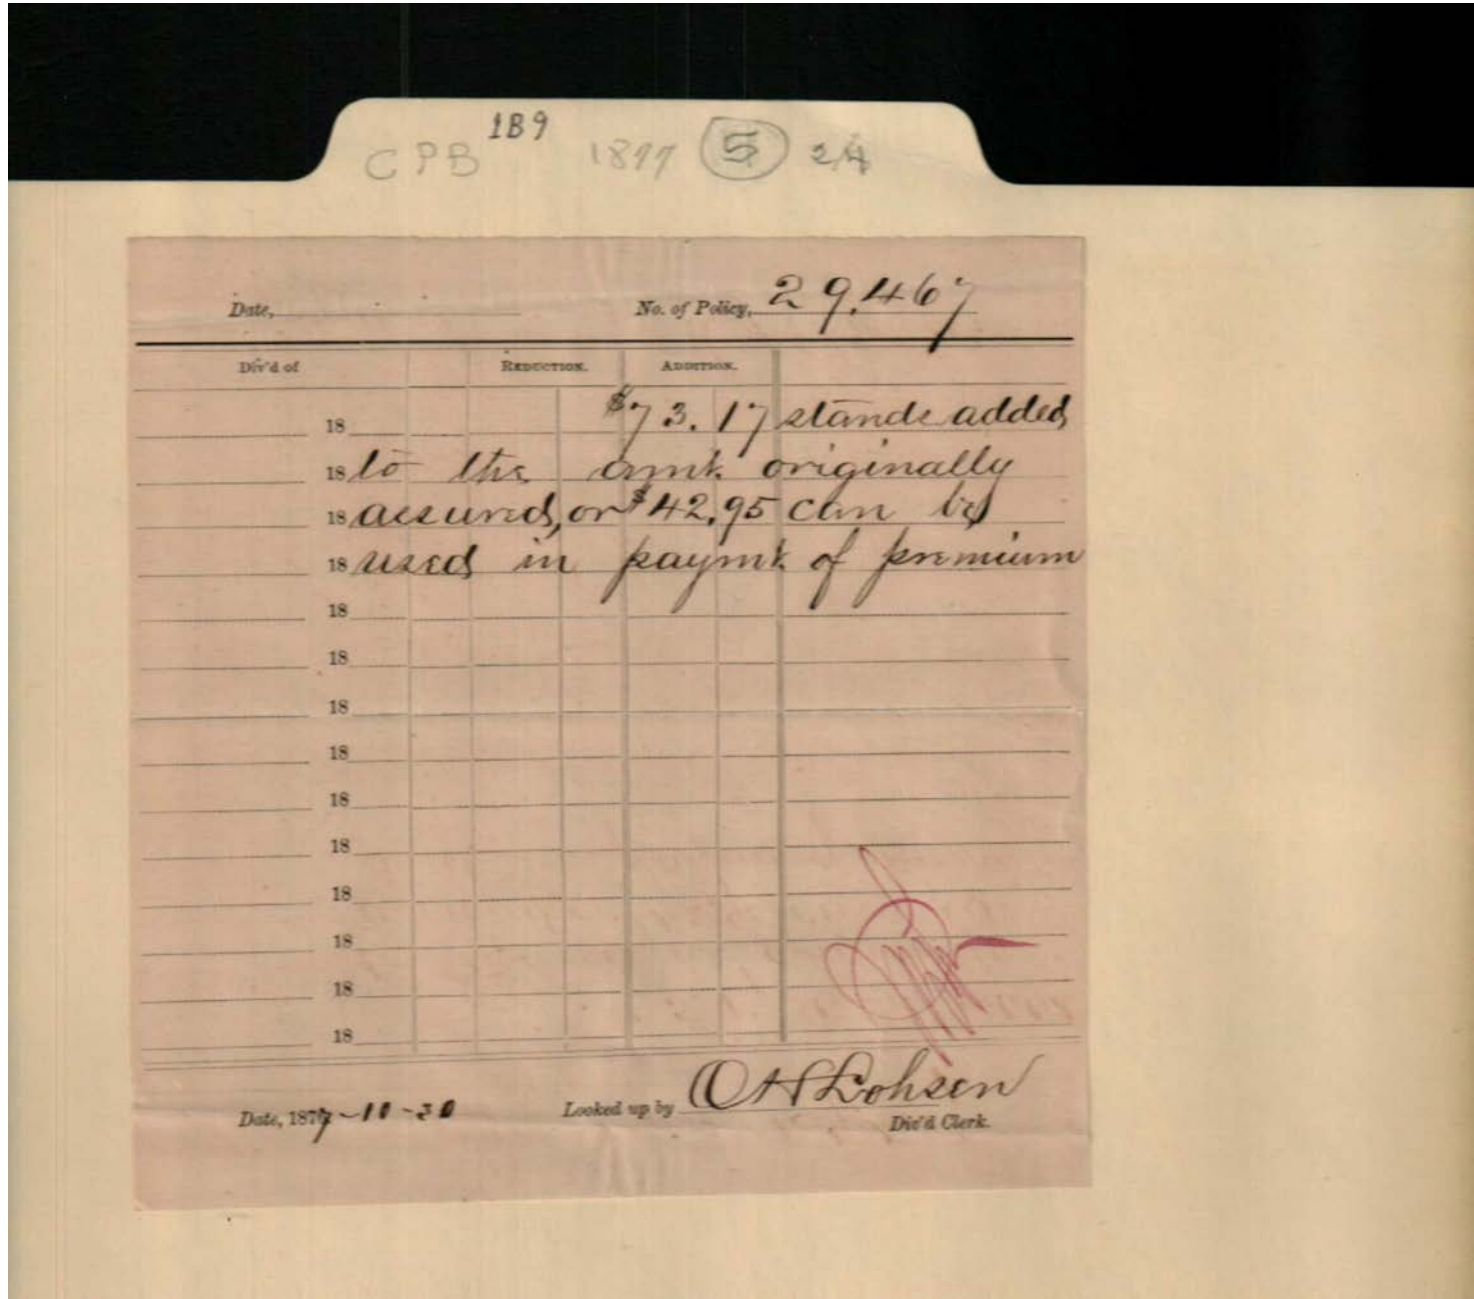 1B9
CPB 1877 5 24
Date, No. of Policy, 29,467
Div'd of REDUCTION. ADDITION.
18 $73.17 stands added
18 to the amt. originally
18 assured, or $42.95 can be
18 used in paymt. of premium
18
18
18
18
18
18
18
18
18
18
Date, 1877-10-30 Looked up by O H Lohsen
Div'd Clerk.